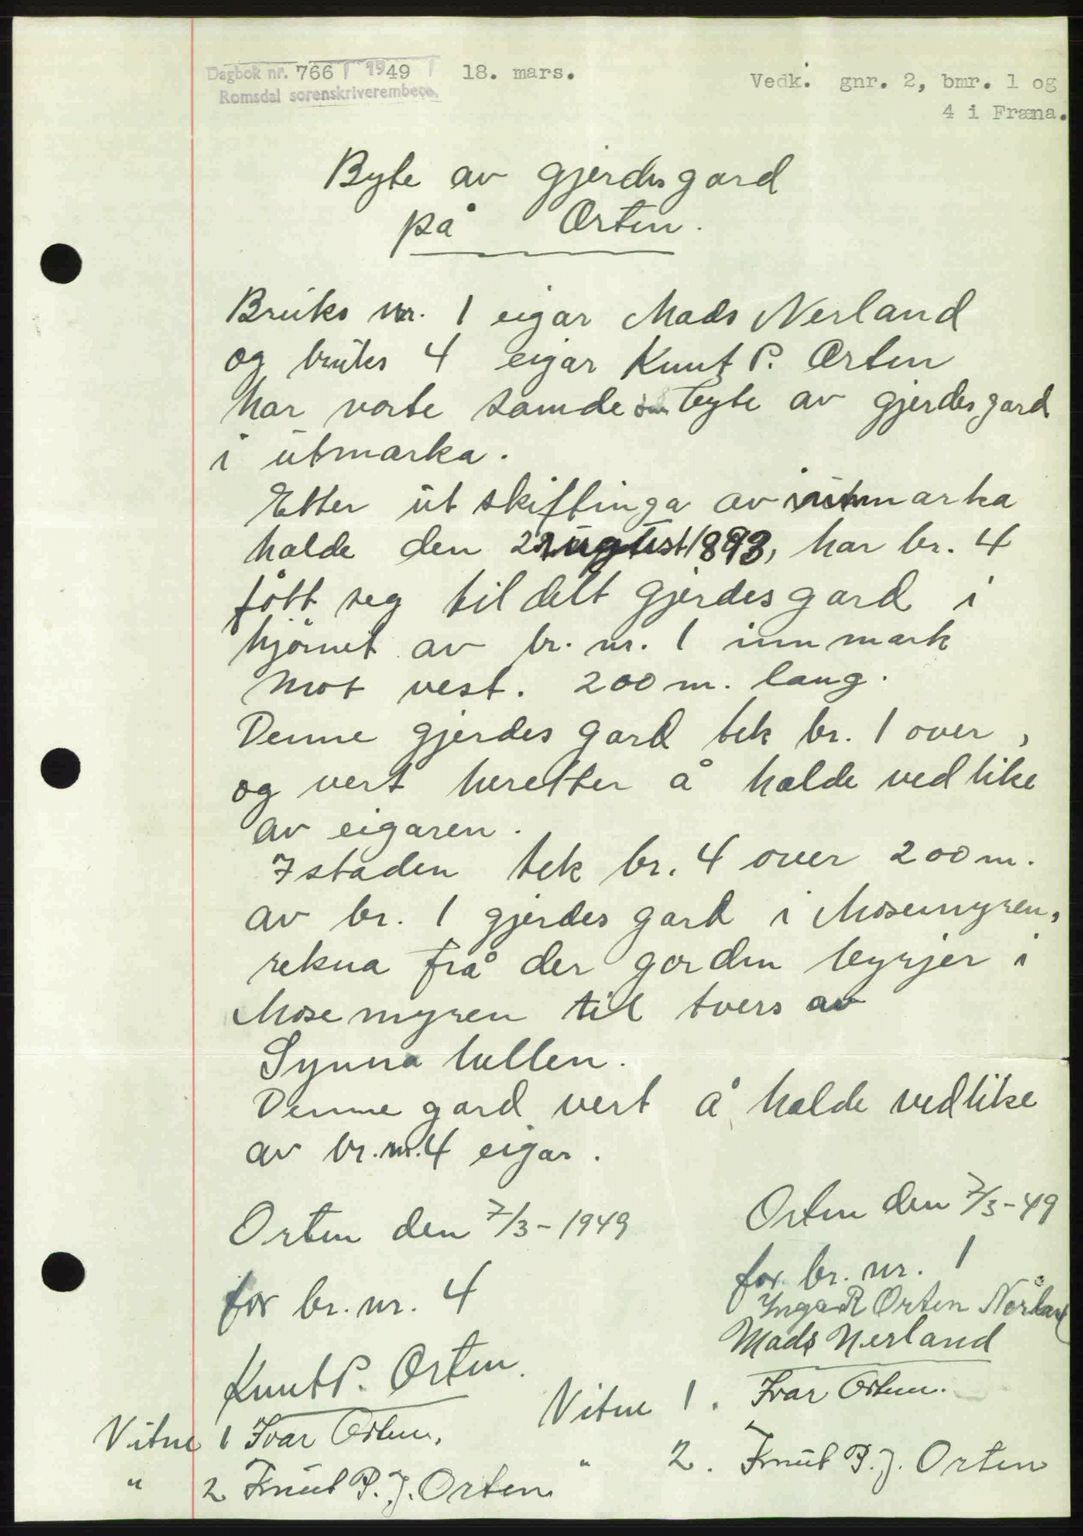 Dagbok nr. 766 1949 18. mars. Vedk. gnr. 2, bmr. 1 og
Romsdal sorenskriverembete. 4 i Fræna.
Byte av gjerdesgard
på Orten.
Bruks nr. 1 eigar Mads Nerland
og bruks 4 eigar Knut P. Orten
har vorte samde om byte av gjerdesgard
i utmarka.
Etter utskiftinga av utmarka
halde den august 1893, har br. 4
fått seg tildelt gjerdesgard i
hjörnet av br. nr. 1 innmark
mot vest. 200 m. lang.
Denne gjerdesgard tek br. 1 over,
og vert heretter å halde vedlike
av eigaren.
Istaden tek br. 4 over 200 m.
av br. 1 gjerdesgard i Mosemyren,
rekna frå der garden byrjer i
Mosemyren til tvers av
Synna
Denne gard vert å halde vedlike
av br. nr. 4 eigar.
Orten den 7/3-1949 Orten den 7/3-49
for br. nr. 4 for br. nr. 1
Inga R Orten Nerland
Mads Nerland
Knut P. Orten.
Vitne 1 Ivar Orten. Vitne 1. Ivar Orten.
" 2 Knut P. J. Orten " 2. Knut P. J. Orten